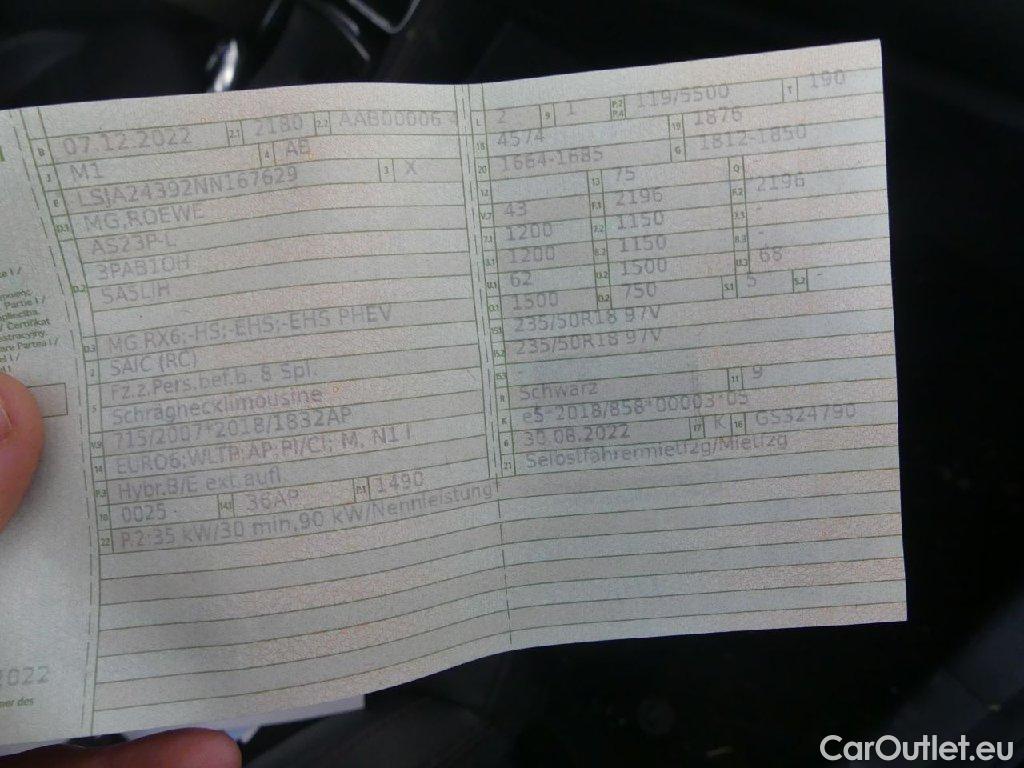 B 07.12.2022 2.1 2180 2.2 AAB00006 4
J M1 4 AB
E LSJA24392NN167629 3 X
D.1 MG,ROEWE
D.2 AS23P-L
3PAB1OH
SA5LIH
D.3 MG RX6;-HS;-EHS;-EHS PHEV
2 SAIC (RC)
5 Fz.z.Pers.bef.b. 8 Spl.
Schräghecklimousine
V.9 715/2007*2018/1832AP
14 EURO6;WLTP;AP;PI/CI; M, N1 I
P.3 Hybr.B/E ext.aufl
10 0025 14.1 36AP P.1 1490
22 P.2:35 kW/30 min,90 kW/Nennleistung
L 2 9 1 P.2 P.4 119/5500 T 190
18 4574 19 1876
20 1664-1685 G 1812-1850
12 - 13 75 Q -
V.7 43 F.1 2196 F.2 2196
7.1 1200 7.2 1150 7.3 -
8.1 1200 8.2 1150 8.3 -
U.1 62 U.2 1500 U.3 68
O.1 1500 O.2 750 S.1 5 S.2 -
15.1 235/50R18 97V
15.2 235/50R18 97V
15.3 -
R Schwarz 11 9
K e5*2018/858*00003*05
6 30.08.2022 17 K 16 GS324790
21 Selbstfahrermietfzg/Mietfzg
2022
mer des
CarOutlet.eu